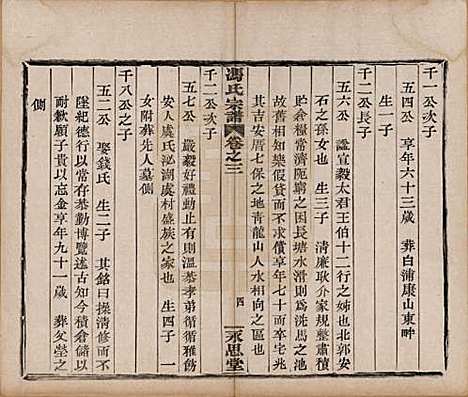 千一公次子
五四公 享年六十三歲 葬白浦康山東畔
生一子
千二公長子
五六公 諡宣毅太君王伯十二行之姊也北郭安
石之孫女也 生三子 清廉耿介家規整肅積
貯倉糧常濟阨窮之因長塘水滑則爲洗馬之池
故舊相知樂假貸而不求償享年七十而卒宅兆
其吉安厝七都之地青龍山人水相向之區也
馮氏宗譜 卷之三 四 永思堂
千二公次子
五七公 嚴毅好禮動止有則溫恭孝弟循循雅飭
安人虞氏泌湖虞村盛族之家也 生四子 一
女附葬先人墓側
千八公之子
五二公 娶錢氏 生二子 其銘曰操清修而
墜紀德行以常存恭勤博覽述古知今積倉儲以
耐飲願子貴以忘金享年九十一歲 葬父塋之
側